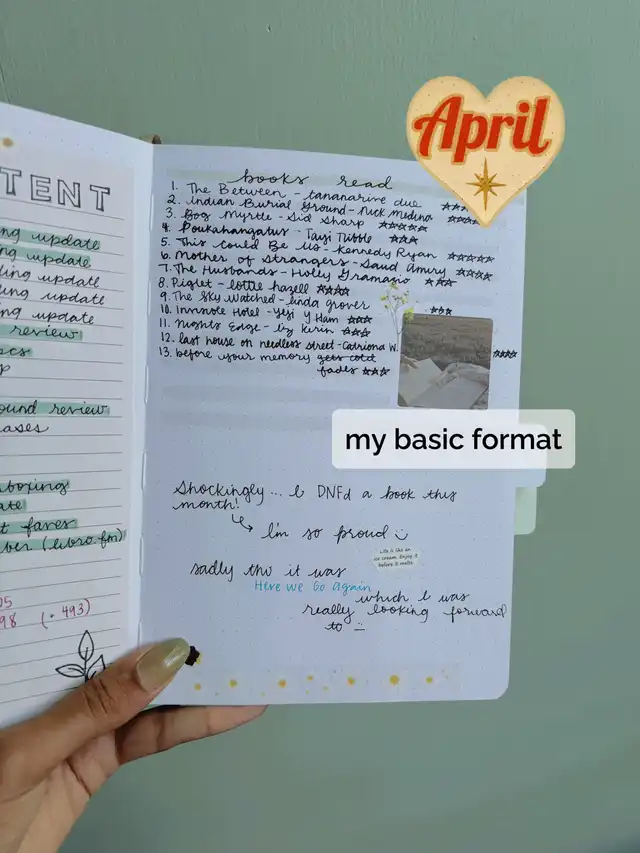 April
TENT
ng update
ng update
ding update
ding update
ng update
review
pcs
p
ound review
ases
nboxing
ate
t faves
ber (libro.fm)
05
98 (+.493)
books read
1. The Between - tananarive due ☆☆☆
2. Indian Burial Ground - Nick Medina ☆☆☆
3. Bog Myrtle - Sid Sharp ☆☆☆☆☆
4. Poukahangatus - Tayi Tibble ☆☆☆
5. This could Be us - Kennedy Ryan ☆☆☆☆☆
6. Mother of Strangers - Saud Amiry ☆☆☆☆
7. The Husbands - Holly Gramazio ☆☆☆
8. Piglet - lottie hazell ☆☆☆☆
9. The Sky Watched - linda grover ☆☆☆
10. Hotel - Yeji Y Ham ☆☆☆
11. Nights Edge - liz kerin ☆☆☆
12. last house on needless street - Catriona W. ☆☆☆☆
13. before your memory gets cold
fades ☆☆☆
my basic format
Shockingly... I DNFd a book this
month!
I'm so proud
Life is like an
ice cream. Enjoy it
before it melts.
sadly tho it was
Here we Go Again
which I was
really looking forward
to